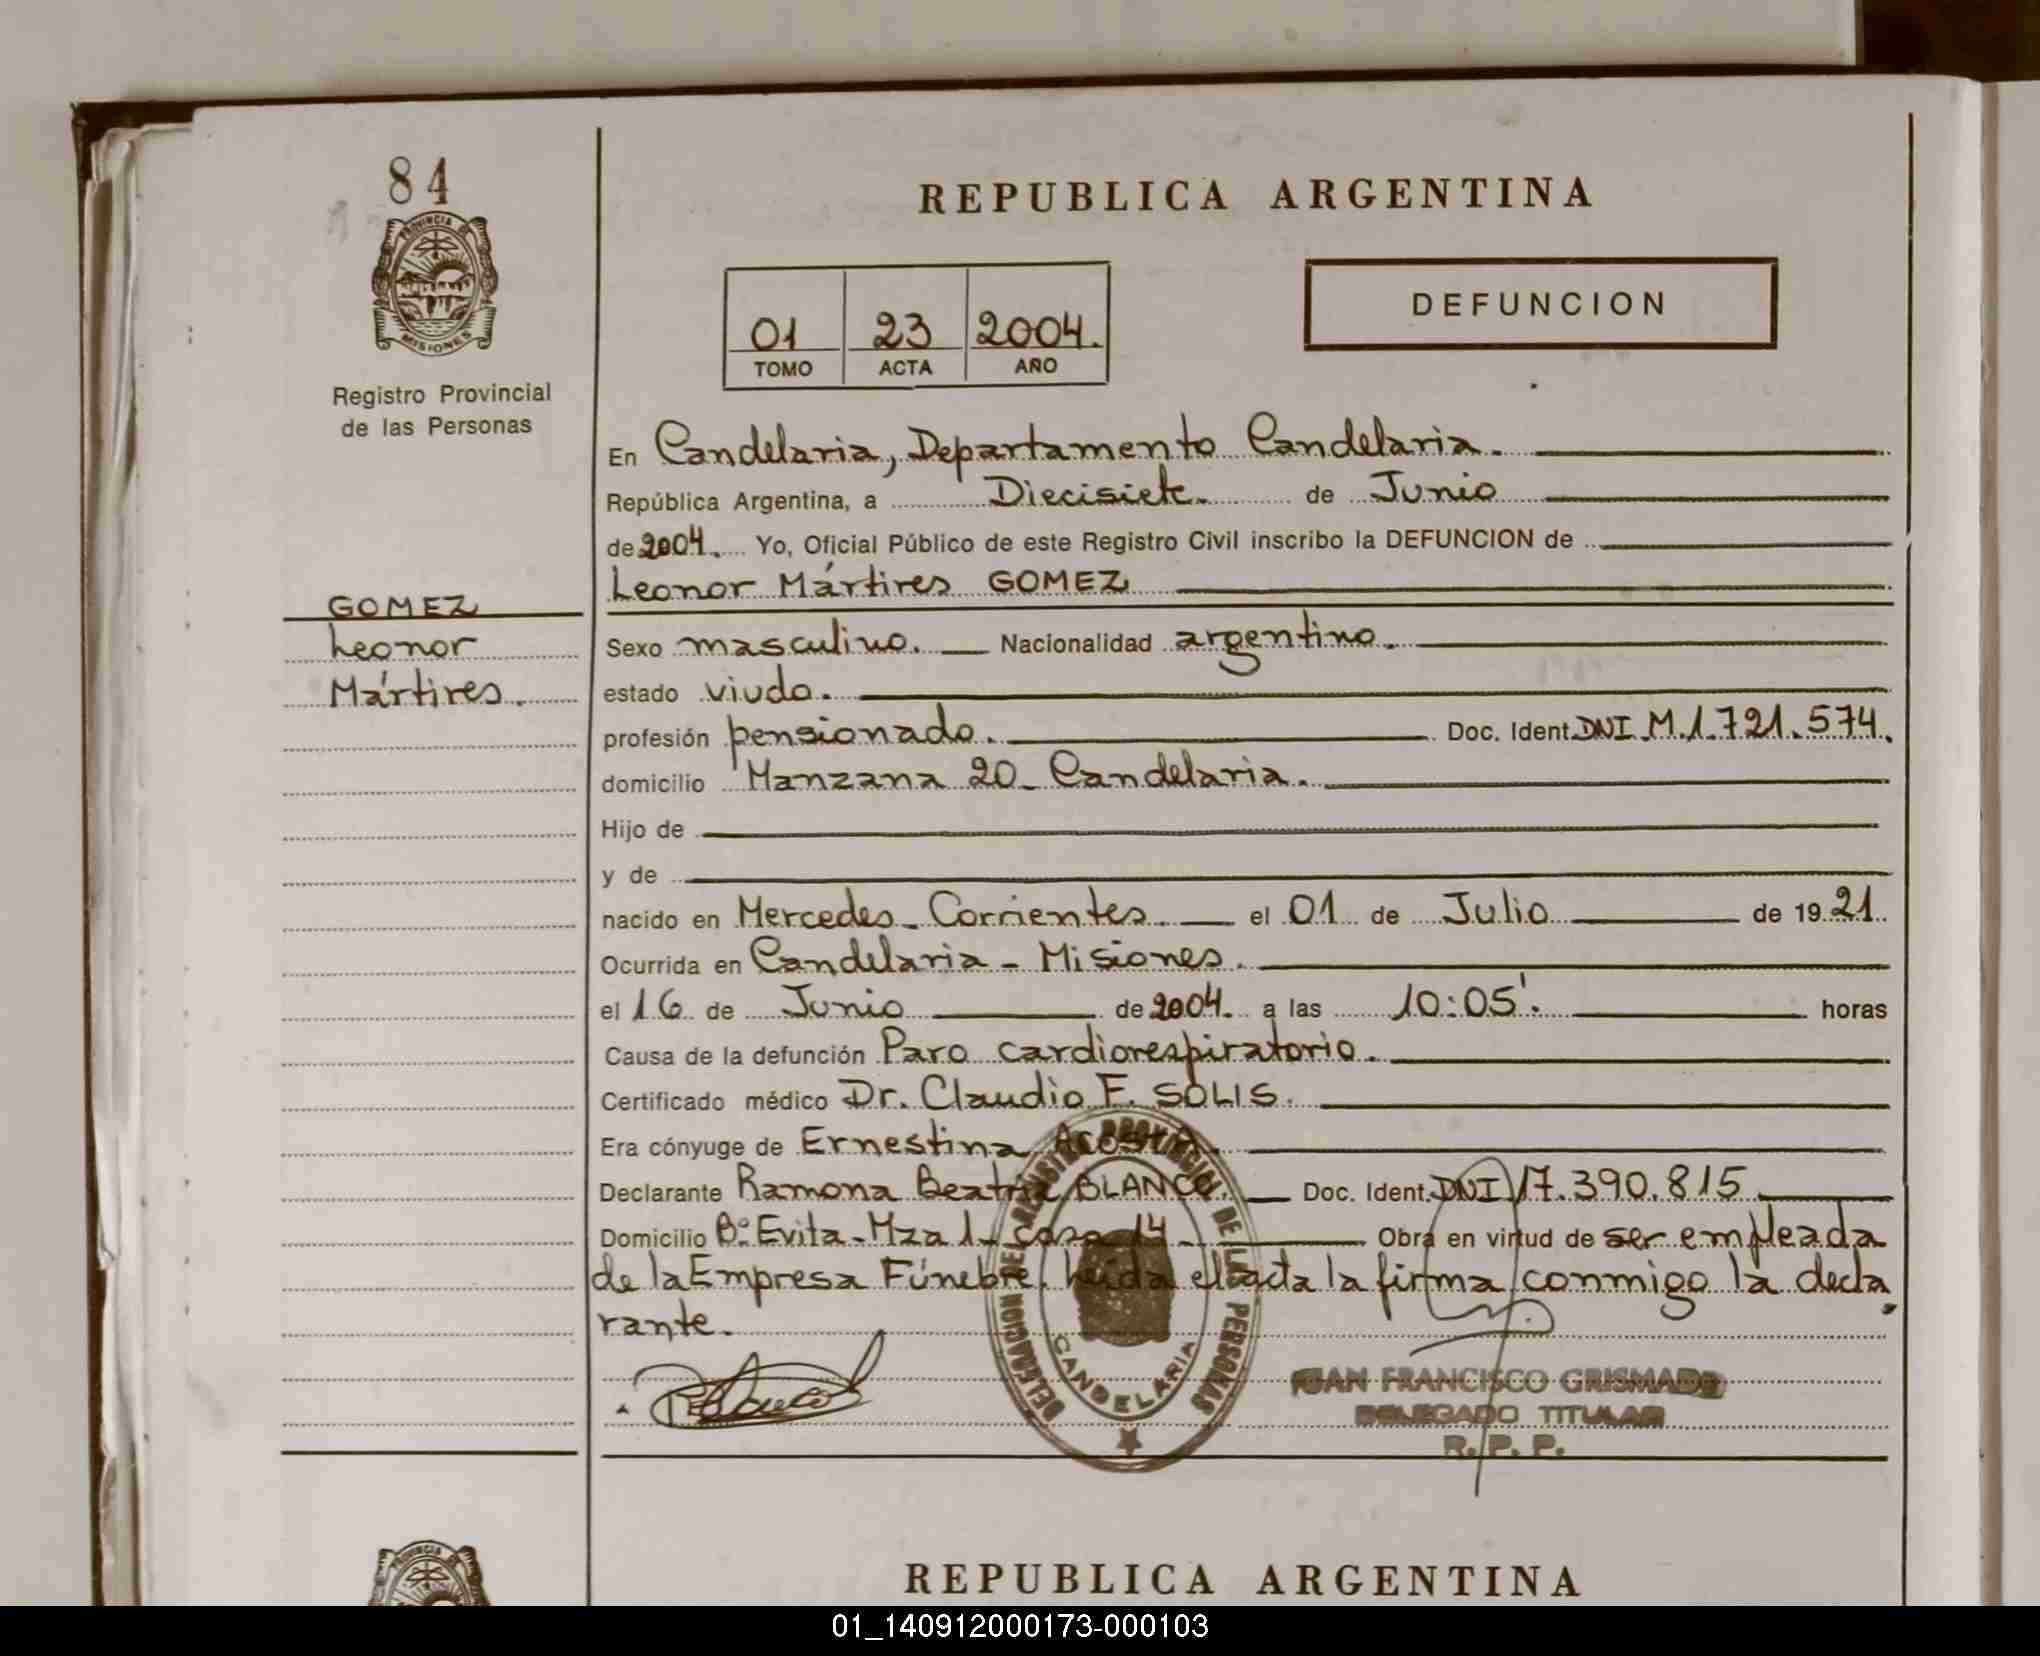 84
PROVINCIA DE
MISIONES
Registro Provincial
de las Personas
GOMEZ
Leonor
Mártires.
REPUBLICA ARGENTINA
01 23 2004.
TOMO ACTA AÑO
DEFUNCION
En Candelaria, Departamento Candelaria.
República Argentina, a Diecisiete. de Junio
de 2004. Yo, Oficial Público de este Registro Civil inscribo la DEFUNCION de
Leonor Mártires GOMEZ
Sexo masculino. Nacionalidad argentino.
estado viudo.
profesión pensionado. Doc. Ident. DNI M.1.721.574.
domicilio Manzana 20 - Candelaria.
Hijo de
y de
nacido en Mercedes - Corrientes el 01 de Julio de 1921.
Ocurrida en Candelaria - Misiones.
el 16 de Junio de 2004. a las 10:05'. horas
Causa de la defunción Paro cardiorespiratorio.
Certificado médico Dr. Claudio F. SOLIS.
Era cónyuge de Ernestina Acosta.
Declarante Ramona Beatriz BLANCO. Doc. Ident. DNI 17.390.815
Domicilio B° Evita - Mza 1 - casa 14 - Obra en virtud de ser empleada
de la Empresa Fúnebre. Leida el acta la firma conmigo la decla
rante.
DELEGACION DEL REGISTRO PROVINCIAL DE LAS PERSONAS
CANDELARIA
JUAN FRANCISCO GRISMADO
DELEGADO TITULAR
R. P. P.
PROVINCIA DE
REPUBLICA ARGENTINA
01_140912000173-000103